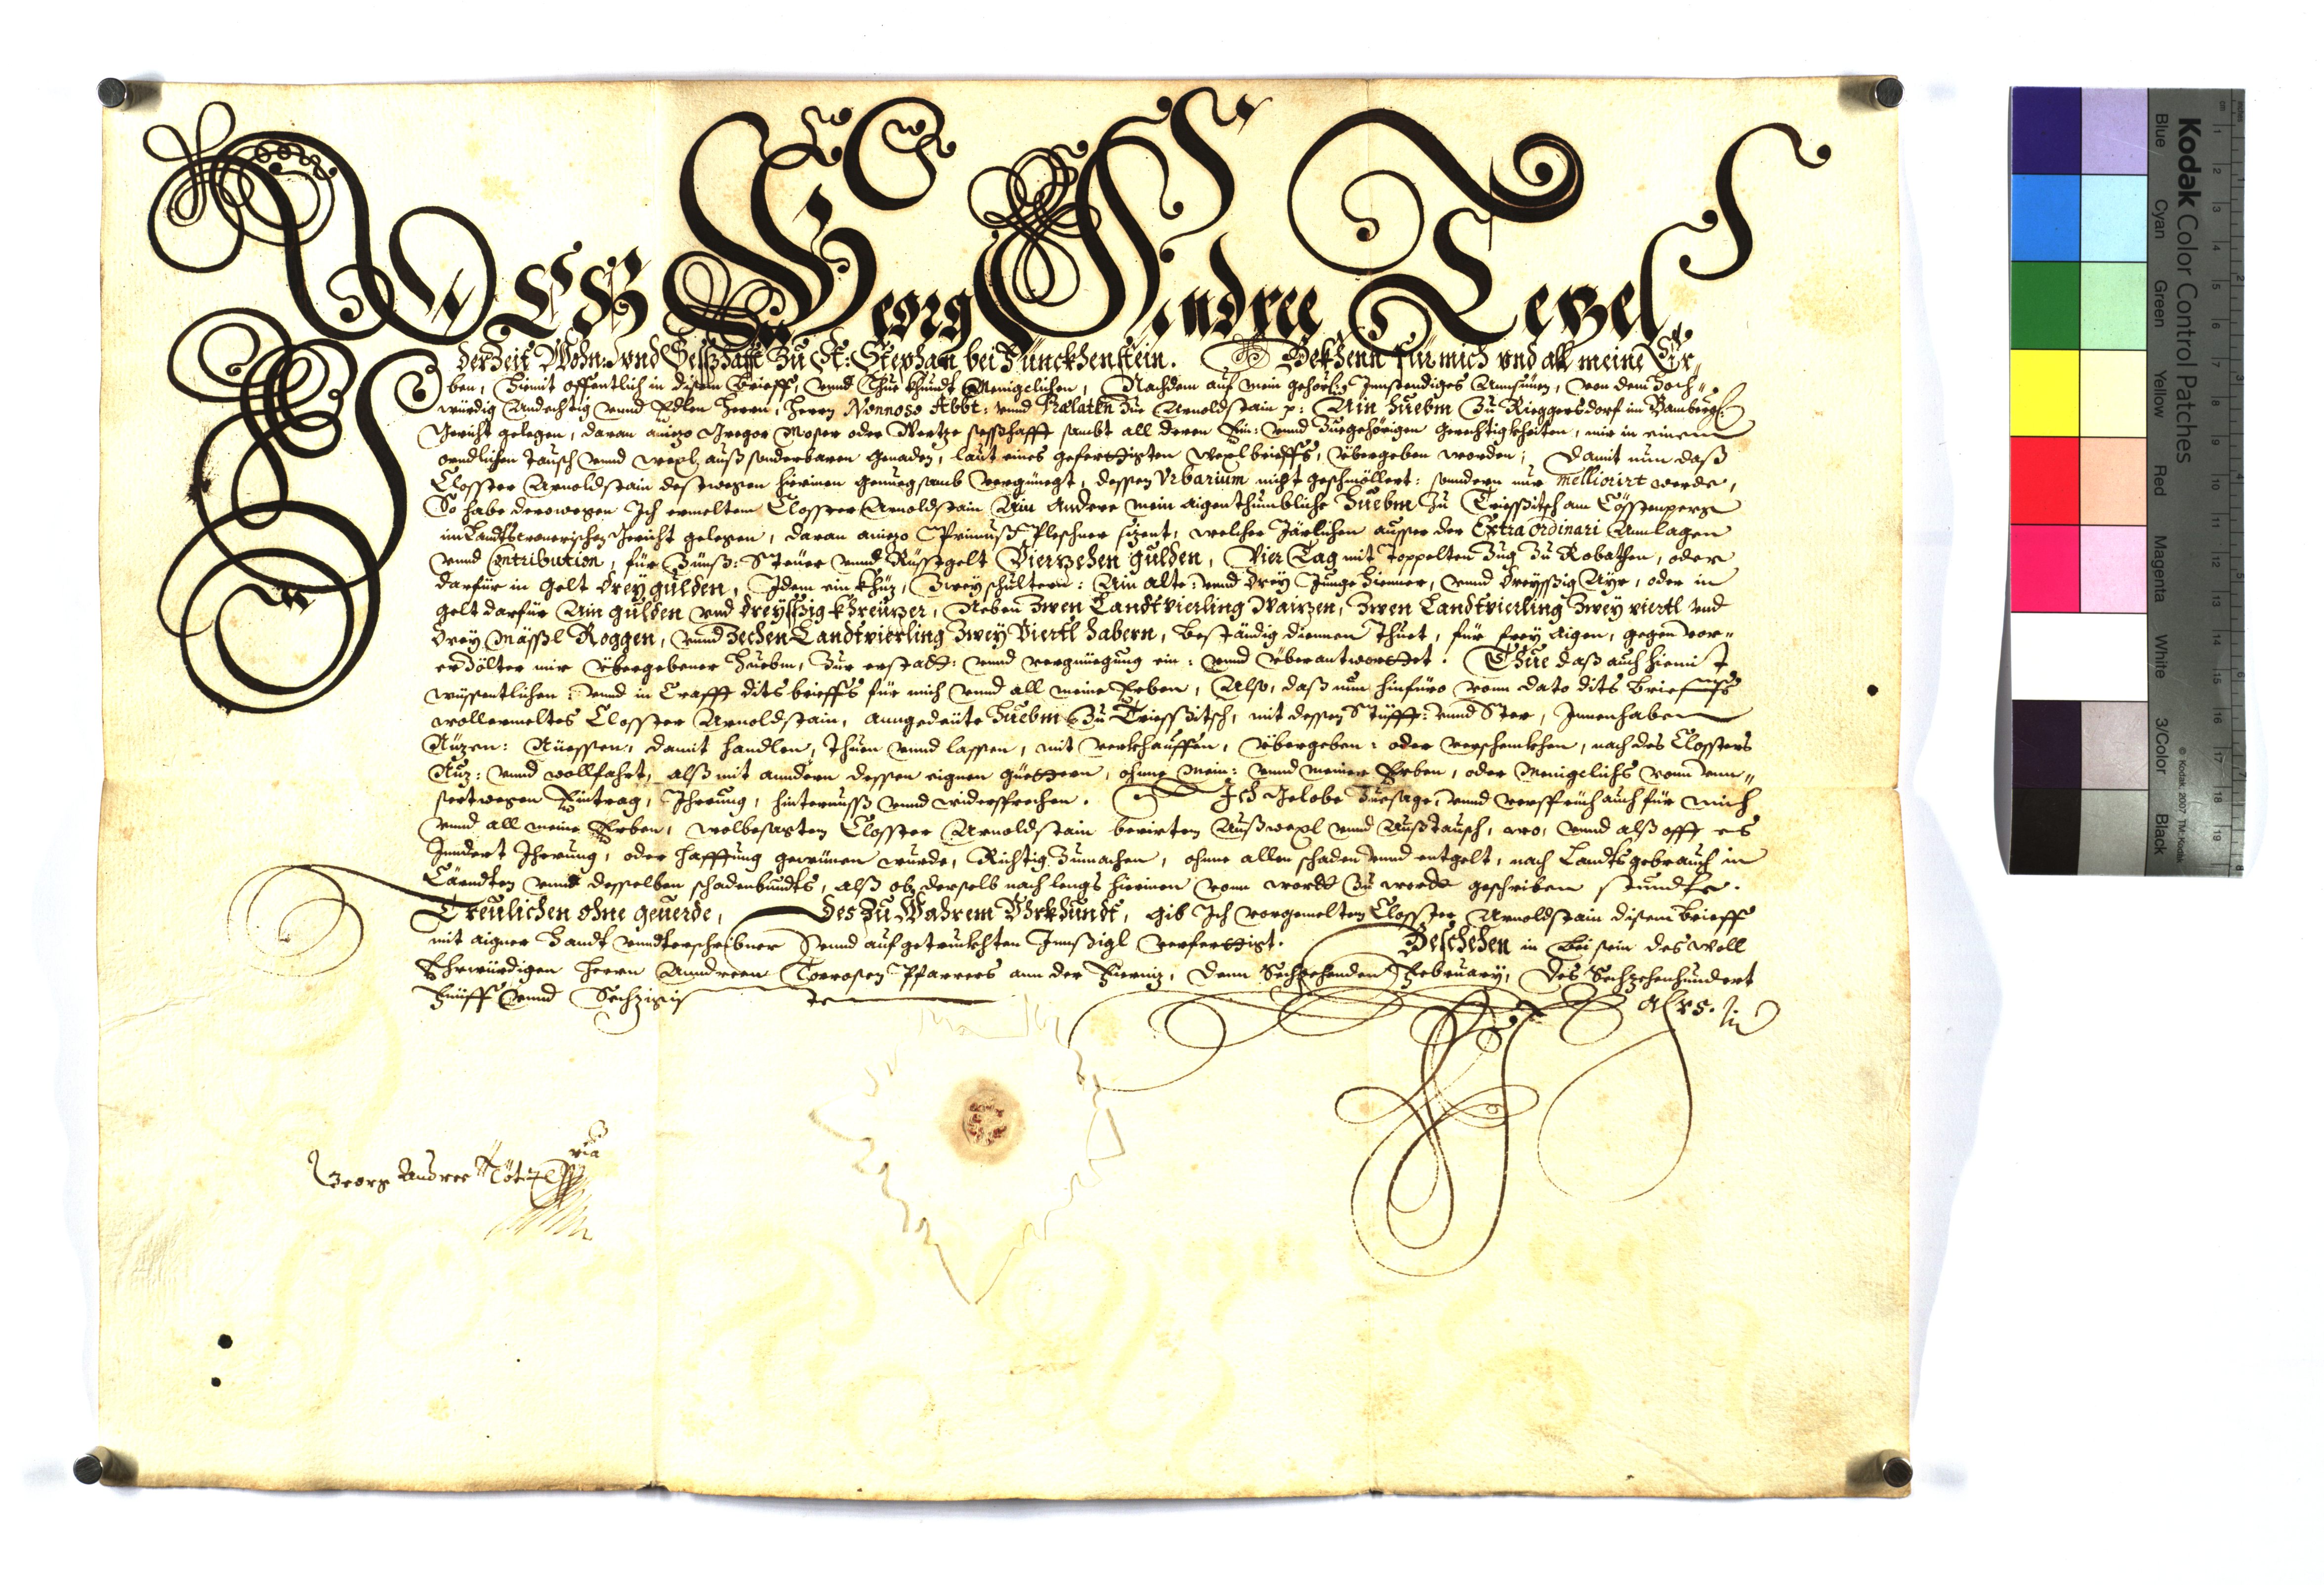 Georg Andree Tetzel
derzeit Wohn: vnd Seßhafft Zu St: Stephan bei Fünckhenstein. Bekhenn für mich vnd all meine Er„
ben, Hiemit offentlich in disem Brieff, vnnd Thue khundt Menigclichen, Nachdem auf mein gehors: Innstendiges Annsuechen, von dem Hoch„
würdig Andechtig vnnd Edlen Herrn, Herrn Nonnoso Abbt: vnnd Prælaten Zue Arnoldstain p: Ain Huebm Zu Rieggersdorf im Bambergl:
Gericht gelegen, daran aniezo Gregor Moser oder Wertze sesshafft sambt all deren Ein: vnnd Zuegehörigen gerechtigkheiten, mir in einem
ordlichen Tausch vnnd wexl, auß sonderbaren Genaden, laut eines gefertigten wexlbrieffs, übergeben worden; Damit nun daß
Closster Arnoldstain destwegen hierinen genuegsamb vergnüegt, dessen Vrbarium nicht geschmöllert: sondern nur melliorirt werde,
So habe derowegen Ich ermeltem Closster Arnoldstain Ain Andere mein aigenthumbliche Huebm Zu Triessitsch am Cösstenperg
im Landtscronerischen Gericht gelegen, daran aniezo Primuß Pleschner sizent, welcher Järlichen ausser der Extra ordinari Anlagen
vnnd Contribution, für Zünß: Steuer vnnd Rüsstgelt Vierzehen gulden, Vier Tag mit doppelten Zug Zu Robathen, oder
darfür in Gelt drey gulden, Idem ein khüz, Zwey schultern: Ain alte: vnnd drey Junge Hienner, vnnd dreyssig Ayr, oder in
gelt darfür Ain gulden vnd dreyßig khreuzer, Neben Zwen Landtvierling Waizen, Zwen Landtvierling Zwey viertl vnd
drey Mässl Roggen, vnnd Zechen Landtvierling Zwey Viertl Habern, Beständig diennen thuet, für frey aigen, gegen vor„
erzölter mir übergebener Huebm, Zur erstatt: vnnd vergnüegung ein: vnnd überantworttet. Thue daß auch hiemit
wissentlichen: vnnd in Crafft dits brieffs für mich vnnd all meine Erben, Also, daß nun hinfüro vonn dato dits brieffs
wollermeltes Closster Arnoldstain, angedeute Huebm Zu Triessitsch, mit dessen Stüfft: vnnd Ster, Innenhaben
Nuzen: Niessen, damit handlen, thuen vnnd lassen, mit verkhauffen, übergeben: oder verschenckhen, nach des Clossters
Nuz: vnnd wollfahrt, alß mit anndern dessen eignen güettern, ohne mein: vnnd meiner Erben, oder Menigclichs vonn vnn„
sertwegen Eintrag, Ihrrung, hinternuß vnnd widersprechen. Ich Gelobe Zuesage, vnnd versprüch auch für mich
vnnd all meine Erben, wolbesagten Closster Arnoldstain berirten Außwexl vnnd Außtausch, wo, vnnd alß offt es
Inndert Ihrrung, oder hafftung gewinnen wurde, Richtig Zumachen, ohnne allen schaden vnnd entgelt, nach Landtsgebrauch in
Cärndten vnnd desselben schadenbundts, alß ob derselb nach lengs hierinen vonn wortt Zu wortt geschriben stundte.
Treulichen ohne geuerde, Des Zu Wahrem Vrkhundt, gib Ich vorgemelten Closster Arnoldstain disen Brieff
mit aigner Handt vnndterschribner vnnd aufgetruckhten Innsigl verferttigt. Beschehen in Beisein des woll
Ehrwürdigen Herrn Anndreen Pfarrers ann der Fierniz, denn Sechzehenden February, des Sechzehenhundert
Fünff vnnd Sechzigis
Georg Andree Tötzl